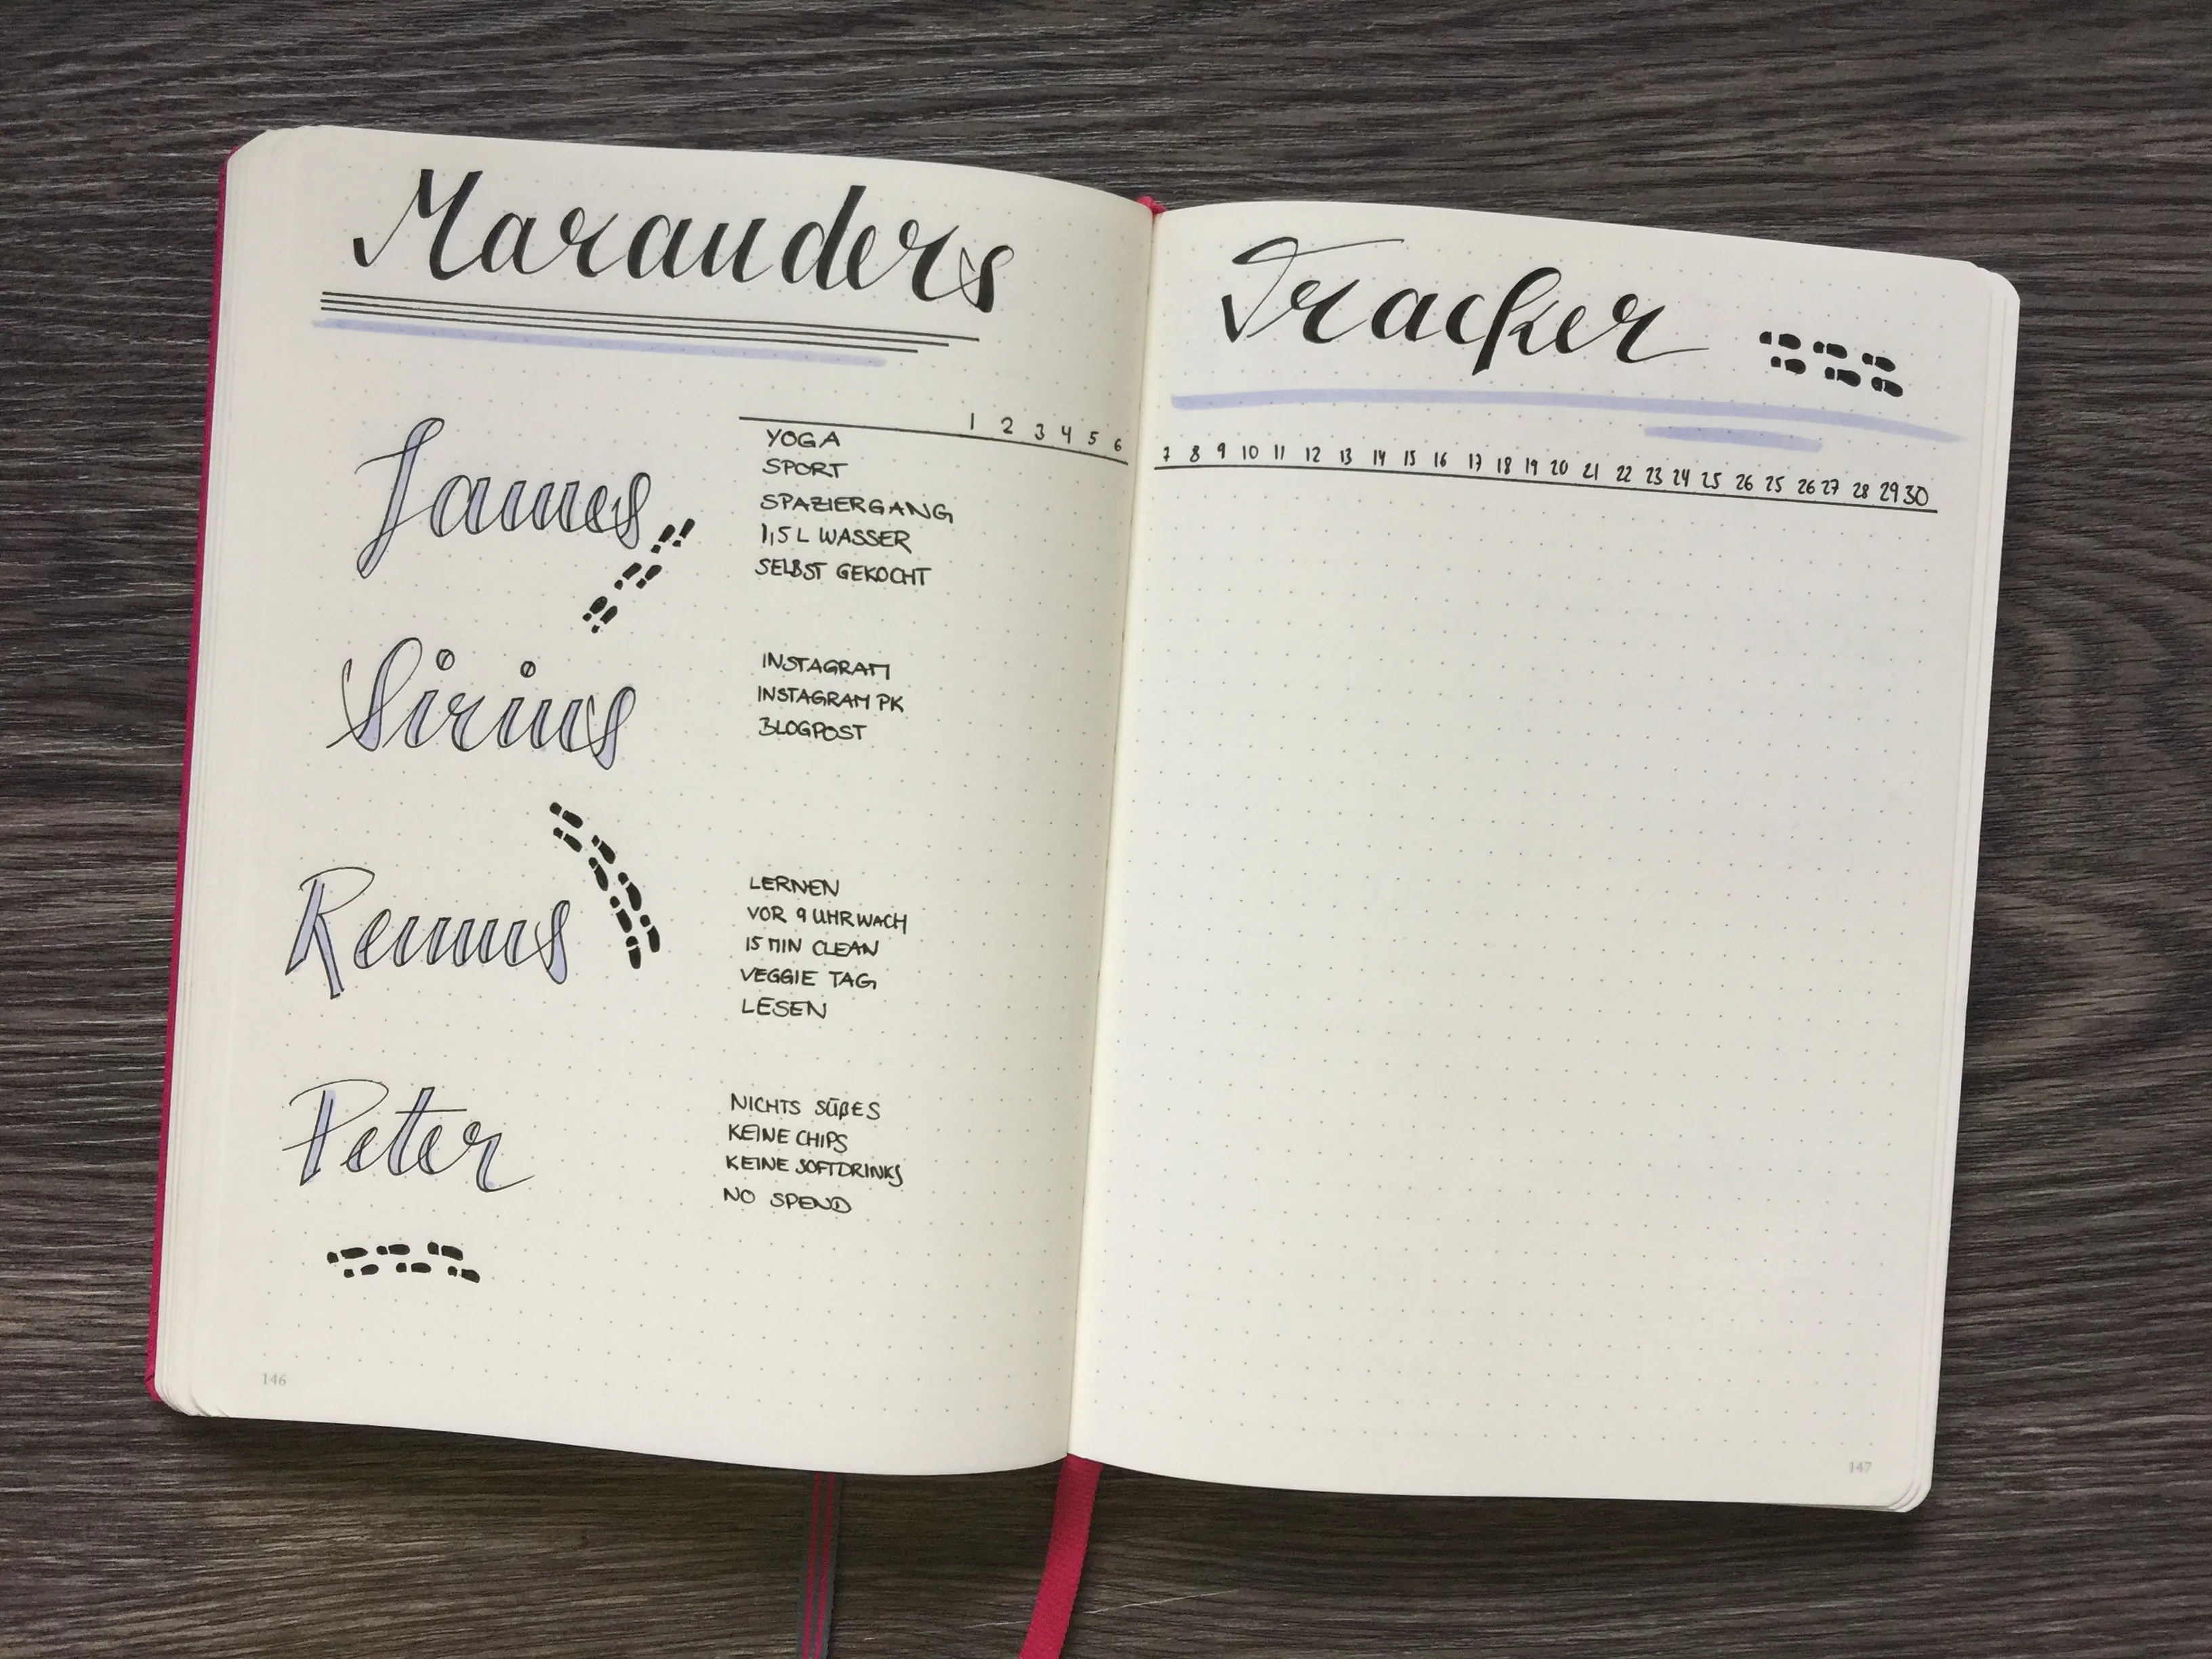 Marauders
Tracker
1 2 3 4 5 6
7 8 9 10 11 12 13 14 15 16 17 18 19 20 21 22 23 24 25 26 25 26 27 28 29 30
James
YOGA
SPORT
SPAZIERGANG
1,5 L WASSER
SELBST GEKOCHT
Sirius
INSTAGRAM
INSTAGRAM PK
BLOGPOST
Remus
LERNEN
VOR 9 UHR WACH
15 MIN CLEAN
VEGGIE TAG
LESEN
Peter
NICHTS SÜßES
KEINE CHIPS
KEINE SOFTDRINKS
NO SPEND
146
147